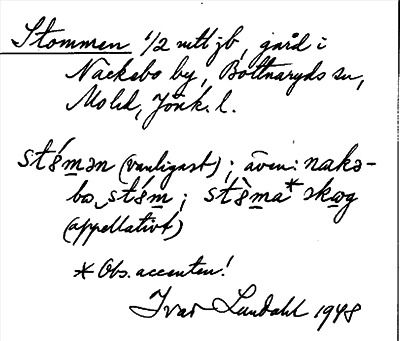 Stommen 1/2 mtl jb, gård i
Nackebo by, Bottnaryds sn,
Mo hd, Jönk. l.
stó̱mən (vanligast); även: nakə-
bo stó̱m; stò̱ma* skog
(appellativt)
* Obs. accenten!
Ivar Lundahl 1948